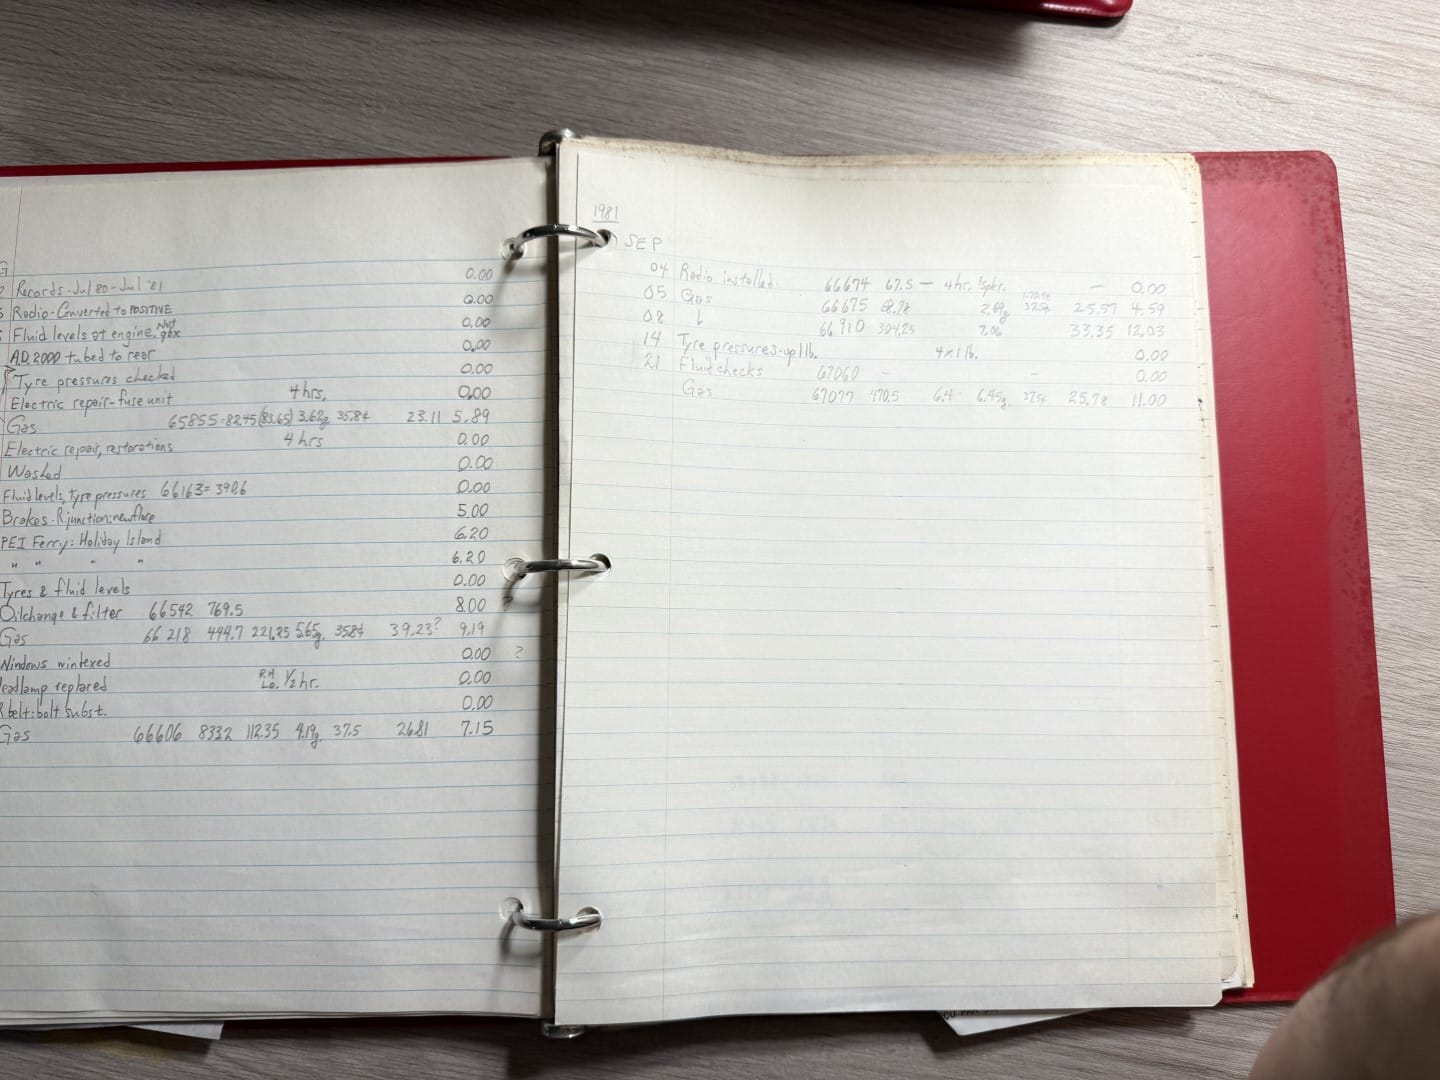 G
Records-Jul 80-Jul '81 0.00
Radio-Converted to POSITIVE 0.00
Fluid levels at engine, Not gbx 0.00
A.D. 2000 tubed to rear 0.00
Tyre pressures checked 0.00
Electric repair-fuse unit 4 hrs. 0.00
Gas 65855=82.45(83.65) 3.62g 35.8¢ 23.11 5.89
Electric repair, restorations 4 hrs 0.00
Washed 0.00
Fluid levels, tyre pressures 66163=390.6 0.00
Brakes-R junction:new flare 5.00
PEI Ferry: Holiday Island 6.20
" " " " 6.20
Tyres & fluid levels 0.00
Oilchange & filter 66542 769.5 8.00 ?
Gas 66218 444.7 221.25 5.65g. 35.8¢ 39.23? 9.19
Windows wintexed 0.00 ?
eadlamp replaced RH Lo. 1/2 hr. 0.00
R belt:bolt subst. 0.00
Gas 66606 833.2 112.35 4.19g 37.5 26.81 7.15
1981
SEP
04 Radio installed. 66674 67.5 — 4hr. 1spkr. — 0.00
05 Gas 66675 2.69g 37.5¢ 25.57 4.59
08 66910 304.25 7.06 33.35 12.03
14 Tyre pressures-up 1lb. 4x1lb. 0.00
21 Fluid checks 67060 - — 0.00
Gas 67077 470.5 6.4- 6.45g. 37.5¢ 25.78 11.00